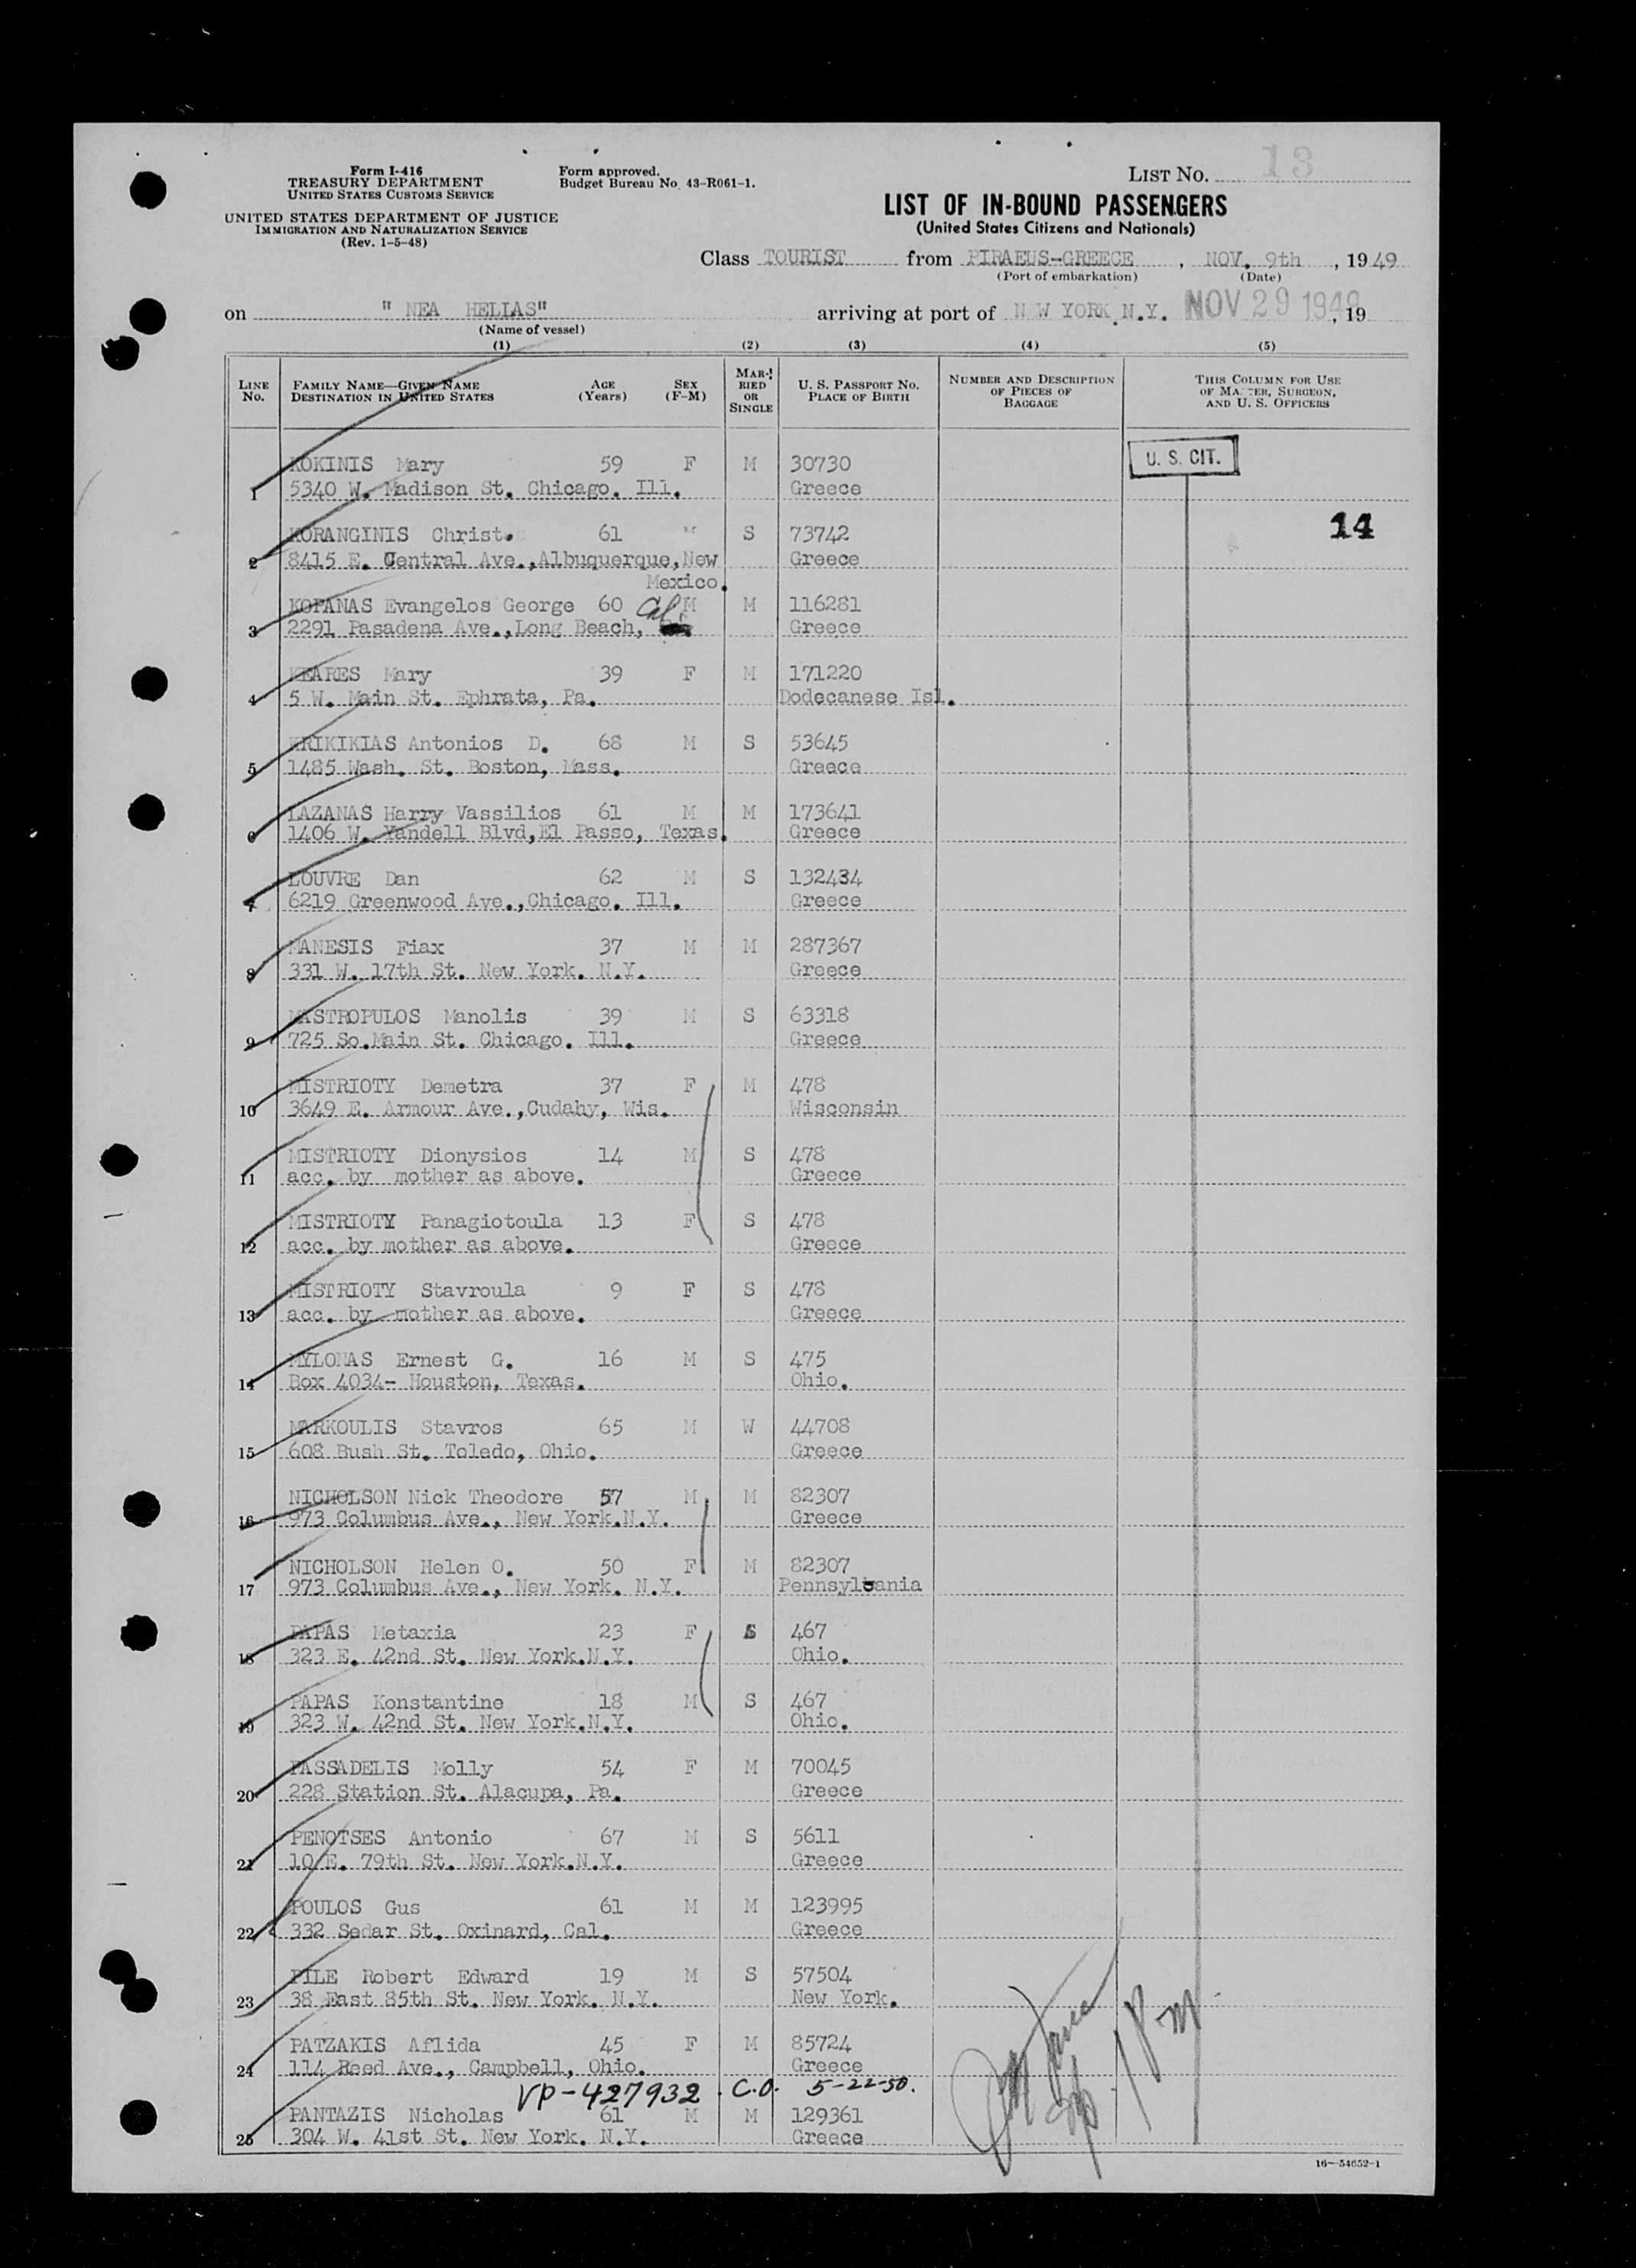 Form I-416
TREASURY DEPARTMENT
UNITED STATES CUSTOMS SERVICE
UNITED STATES DEPARTMENT OF JUSTICE
IMMIGRATION AND NATURALIZATION SERVICE
(Rev. 1-5-48)
Form approved.
Budget Bureau No. 43-R061-1.
LIST NO. 13
LIST OF IN-BOUND PASSENGERS
(United States Citizens and Nationals)
Class TOURIST from PIRAEUS-GREECE , NOV. 9th , 1949
(Port of embarkation) (Date)
on " NEA HELIAS" arriving at port of N W YORK N.Y. NOV 29 1949, 19
(Name of vessel)
(1) (2) (3) (4) (5)
LINE No. FAMILY NAME—GIVEN NAME DESTINATION IN UNITED STATES AGE (Years) SEX (F-M) MARRIED OR SINGLE U. S. PASSPORT NO. PLACE OF BIRTH NUMBER AND DESCRIPTION OF PIECES OF BAGGAGE THIS COLUMN FOR USE OF MASTER, SURGEON, AND U. S. OFFICERS
KOKINIS Mary 59 F M 30730 U. S. CIT.
1 5340 W. Madison St. Chicago. Ill. Greece
KORANGINIS Christ. 61 M S 73742 14
2 8415 E. Central Ave.,Albuquerque,New Greece
Mexico.
KOPANAS Evangelos George 60 Cal. M M 116281
3 2291 Pasadena Ave.,Long Beach, Greece
KEARES Mary 39 F M 171220
4 5 W. Main St. Ephrata, Pa. Dodecanese Isl.
KRIKIKIAS Antonios D. 68 M S 53645
5 1485 Wash. St. Boston, Mass. Greece
LAZANAS Harry Vassilios 61 M M 173641
6 1406 W. Yandell Blvd,El Passo, Texas. Greece
LOUVRE Dan 62 M S 132434
7 6219 Greenwood Ave.,Chicago. Ill. Greece
MANESIS Fiax 37 M M 287367
8 331 W. 17th St. New York. N.Y. Greece
MASTROPULOS Manolis 39 M S 63318
9 725 So.Main St. Chicago. Ill. Greece
MISTRIOTY Demetra 37 F M 478
10 3649 E. Armour Ave.,Cudahy, Wis. Wisconsin
MISTRIOTY Dionysios 14 M S 478
11 acc. by mother as above. Greece
MISTRIOTY Panagiotoula 13 F S 478
12 acc. by mother as above. Greece
MISTRIOTY Stavroula 9 F S 478
13 acc. by mother as above. Greece
MYLONAS Ernest G. 16 M S 475
14 Box 4034- Houston, Texas. Ohio.
MARKOULIS Stavros 65 M W 44708
15 608 Bush St. Toledo, Ohio. Greece
NICHOLSON Nick Theodore 57 M M 82307
16 973 Columbus Ave., New York.N.Y. Greece
NICHOLSON Helen O. 50 F M 82307
17 973 Columbus Ave., New York. N.Y. Pennsylvania
PAPAS Metaxia 23 F S 467
18 323 E. 42nd St. New York.N.Y. Ohio.
PAPAS Konstantine 18 M S 467
19 323 W. 42nd St. New York.N.Y. Ohio.
PASSADELIS Molly 54 F M 70045
20 228 Station St. Alacupa, Pa. Greece
PENOTSES Antonio 67 M S 5611
21 10 E. 79th St. New York.N.Y. Greece
POULOS Gus 61 M M 123995
22 332 Sedar St. Oxinard, Cal. Greece
PILE Robert Edward 19 M S 57504
23 38 East 85th St. New York. N.Y. New York.
PATZAKIS Aflida 45 F M 85724
24 114 Reed Ave., Campbell, Ohio. Greece
VP-427932 . C.O. 5-22-50.
PANTAZIS Nicholas 61 M M 129361
25 304 W. 41st St. New York. N.Y. Greece
16—54652-1